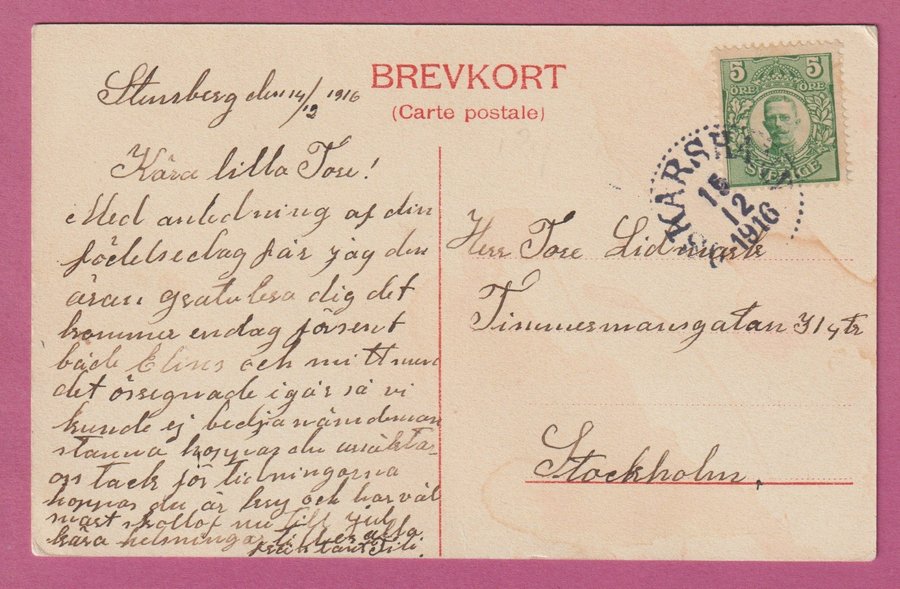 BREVKORT
(Carte postale)
Stensberg den 14/12 1916
Kära lilla Tore!
Med anledning af din
födelsedag får jag den
äran gratulera dig det
kommer endag försent
både Elins och mitt men
det örsegnade igår så vi
kunde ej bedja
stanna hoppas du ursäkta
oss tack för tidningarna
hoppas du är kry och har väl
snart skollof nu till jul
kära helsningar till er alla
från tant Tili.
5 5
ÖRE ÖRE
SVERIGE
15
12
1916
Herr Tore Lidmark
Timmermansgatan 31 4 tr
Stockholm.